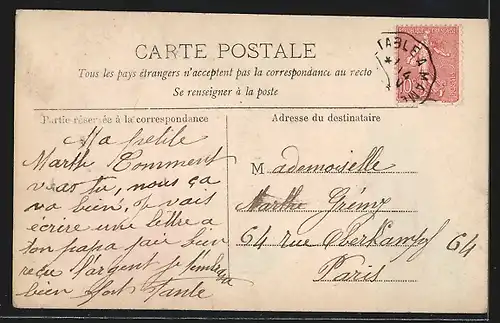 CARTE POSTALE
Tous les pays étrangers n'acceptent pas la correspondance au recto
Se renseigner à la poste
Partie réservée à la correspondance
Adresse du destinataire
Ma petite
Marthe Comment
vas tu, nous ça
va bien, je vais
écrire une lettre a
ton papa jai bien
recu l'argent je t'embrasse
bien fort Tante
Mademoiselle
Marthe
64 rue Oberkampf 64
Paris
TABLE A
10